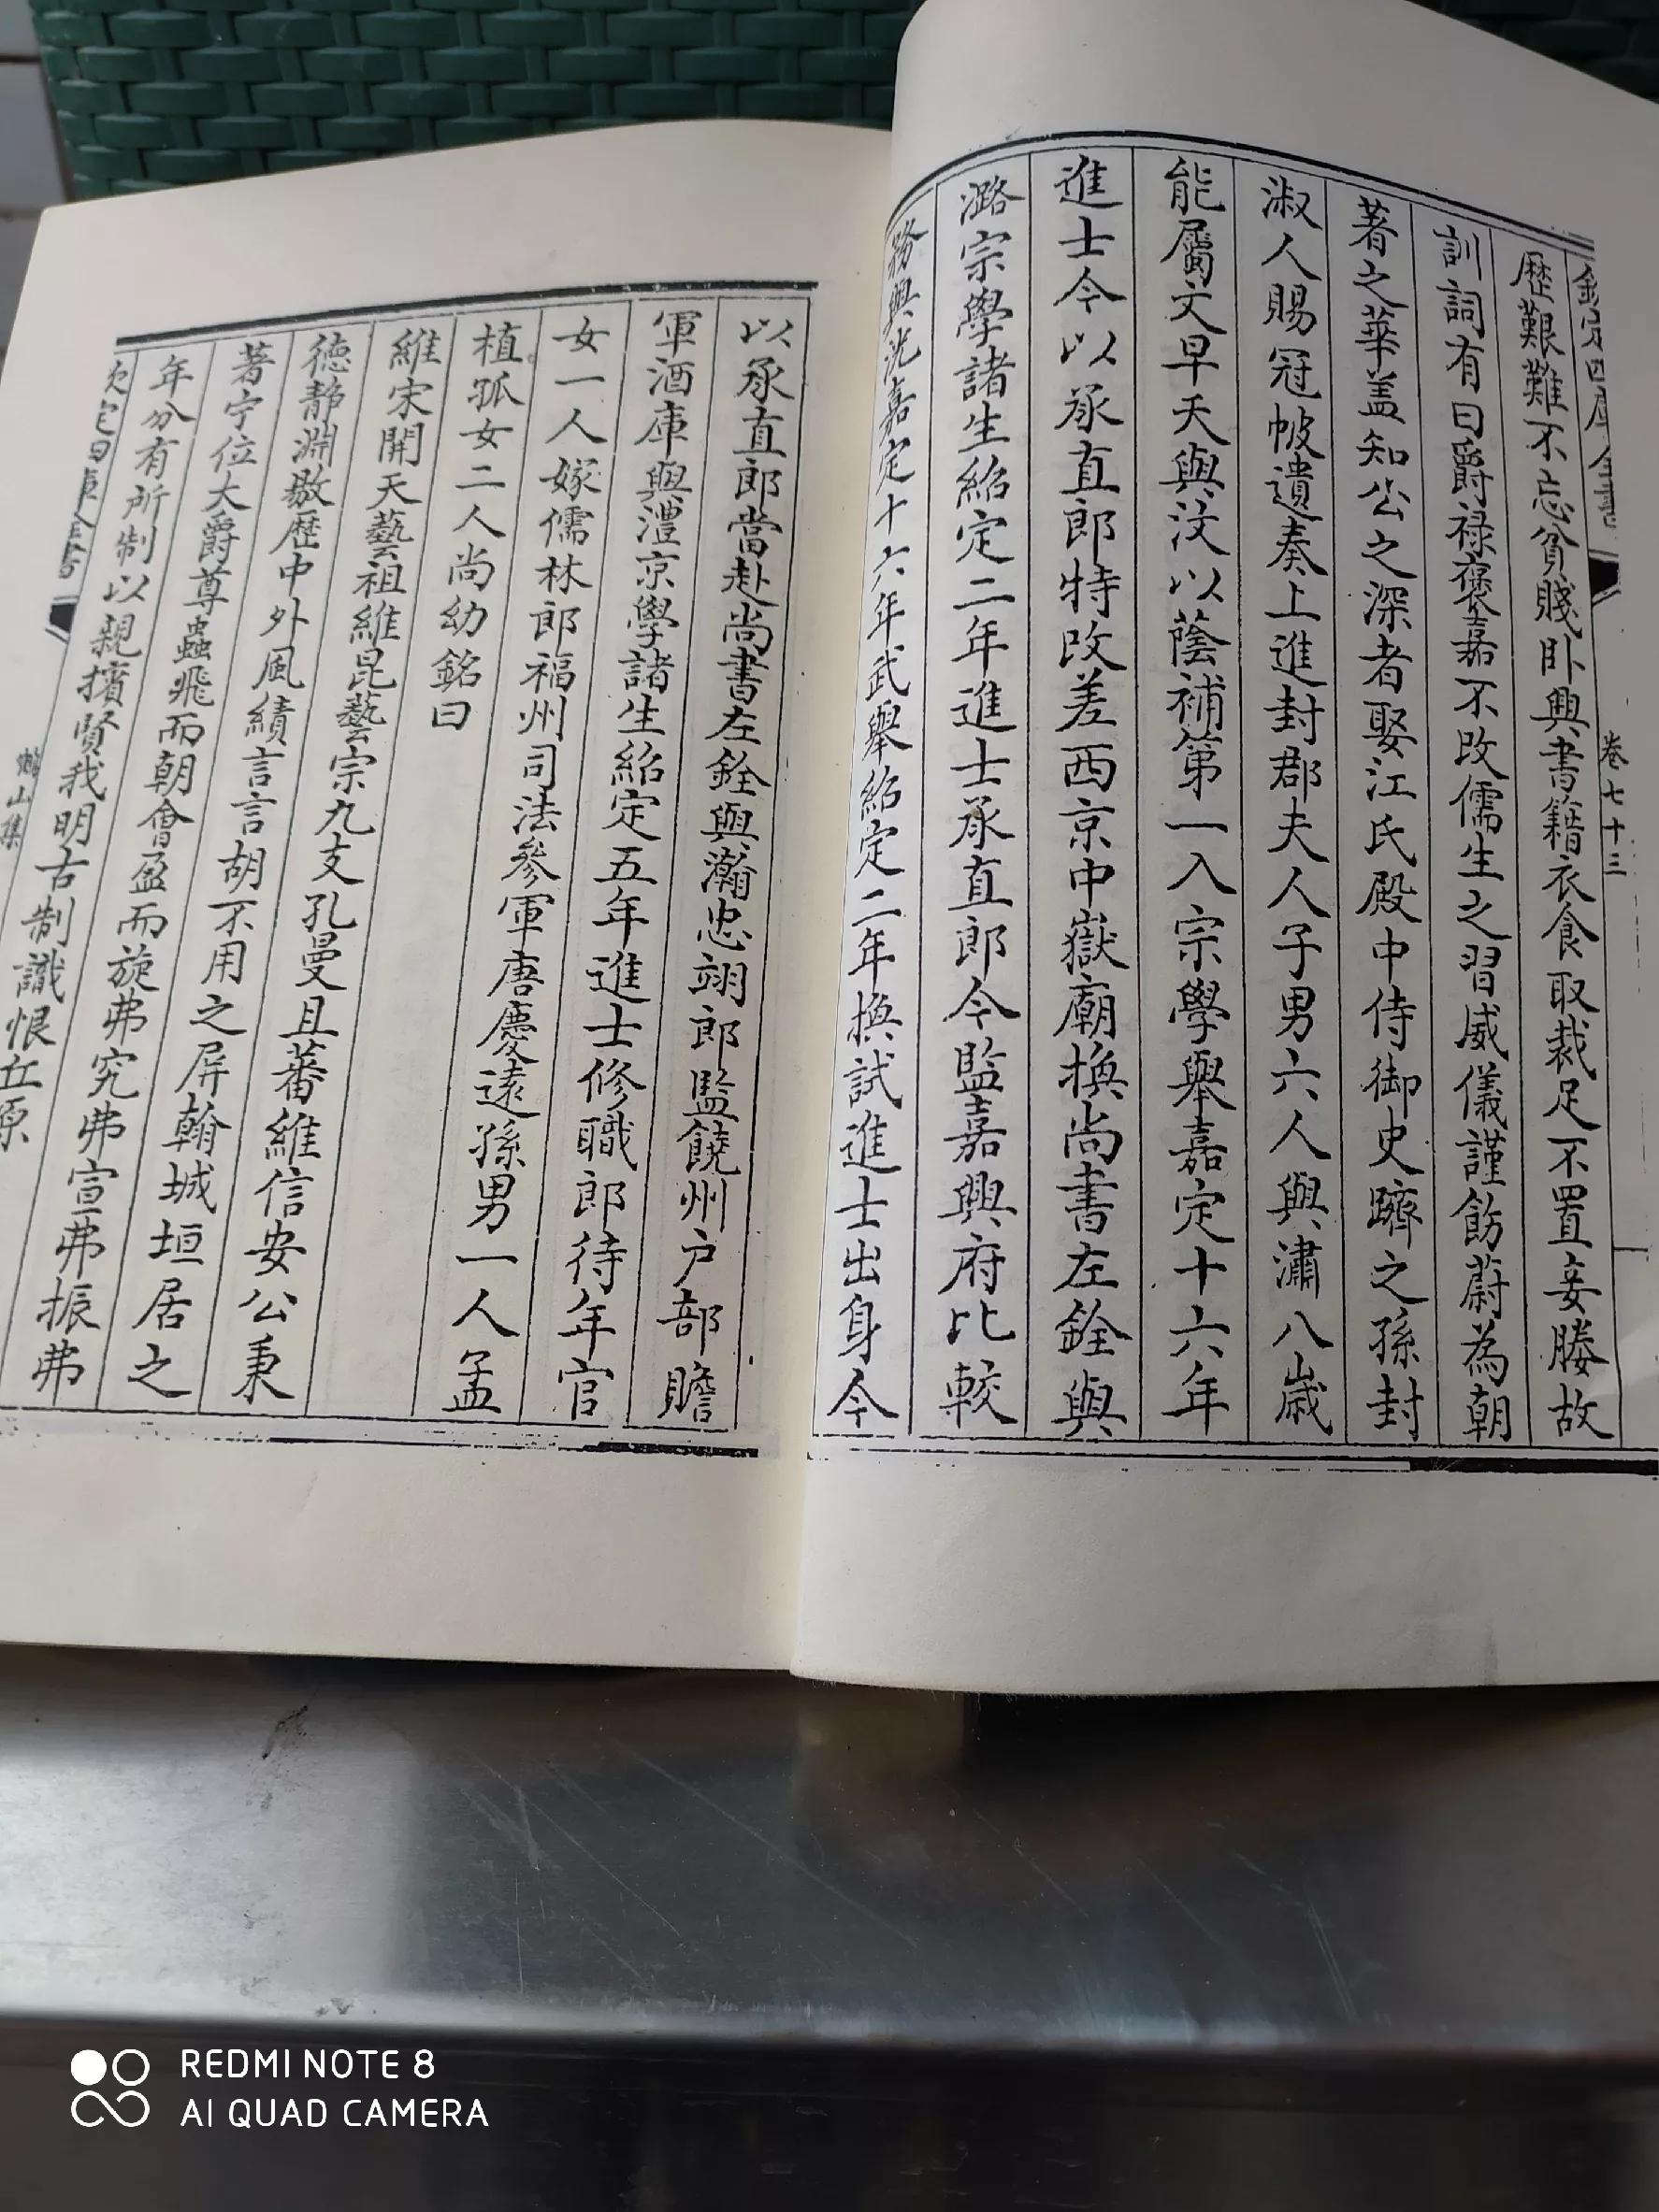 欽定四庫全書
卷七十三
歴艱難不忘貧賤卧興書籍衣食取裁足不置妾媵故
訓詞有曰爵禄褒嘉不改儒生之習威儀謹飭蔚為朝
著之華盖知公之深者娶江氏殿中侍御史躋之孫封
淑人賜冠帔遺奏上進封郡夫人子男六人與潚八歳
能屬文早夭與汶以蔭補第一入宗學舉嘉定十六年
進士今以承直郎特改差西京中嶽廟換尚書左銓與
潞宗學諸生紹定二年進士承直郎今監嘉興府比較
務與洸嘉定十六年武舉紹定二年換試進士出身今
以承直郎當赴尚書左銓與瀚忠翊郎監饒州户部贍
軍酒庫與澧京學諸生紹定五年進士修職郎待年官
女一人嫁儒林郎福州司法參軍唐慶遠孫男一人孟
植孤女二人尚幼銘曰
維宋開天藝祖維昆藝宗九支孔曼且蕃維信安公秉
徳静淵敭歴中外風績言言胡不用之屏翰城垣居之
著宁位大爵尊蟲飛而朝會盈而旋弗究弗宣弗振弗
年分有所制以親擯賢我明古制識恨丘原
欽定四庫全書
鶴山集
REDMI NOTE 8
AI QUAD CAMERA